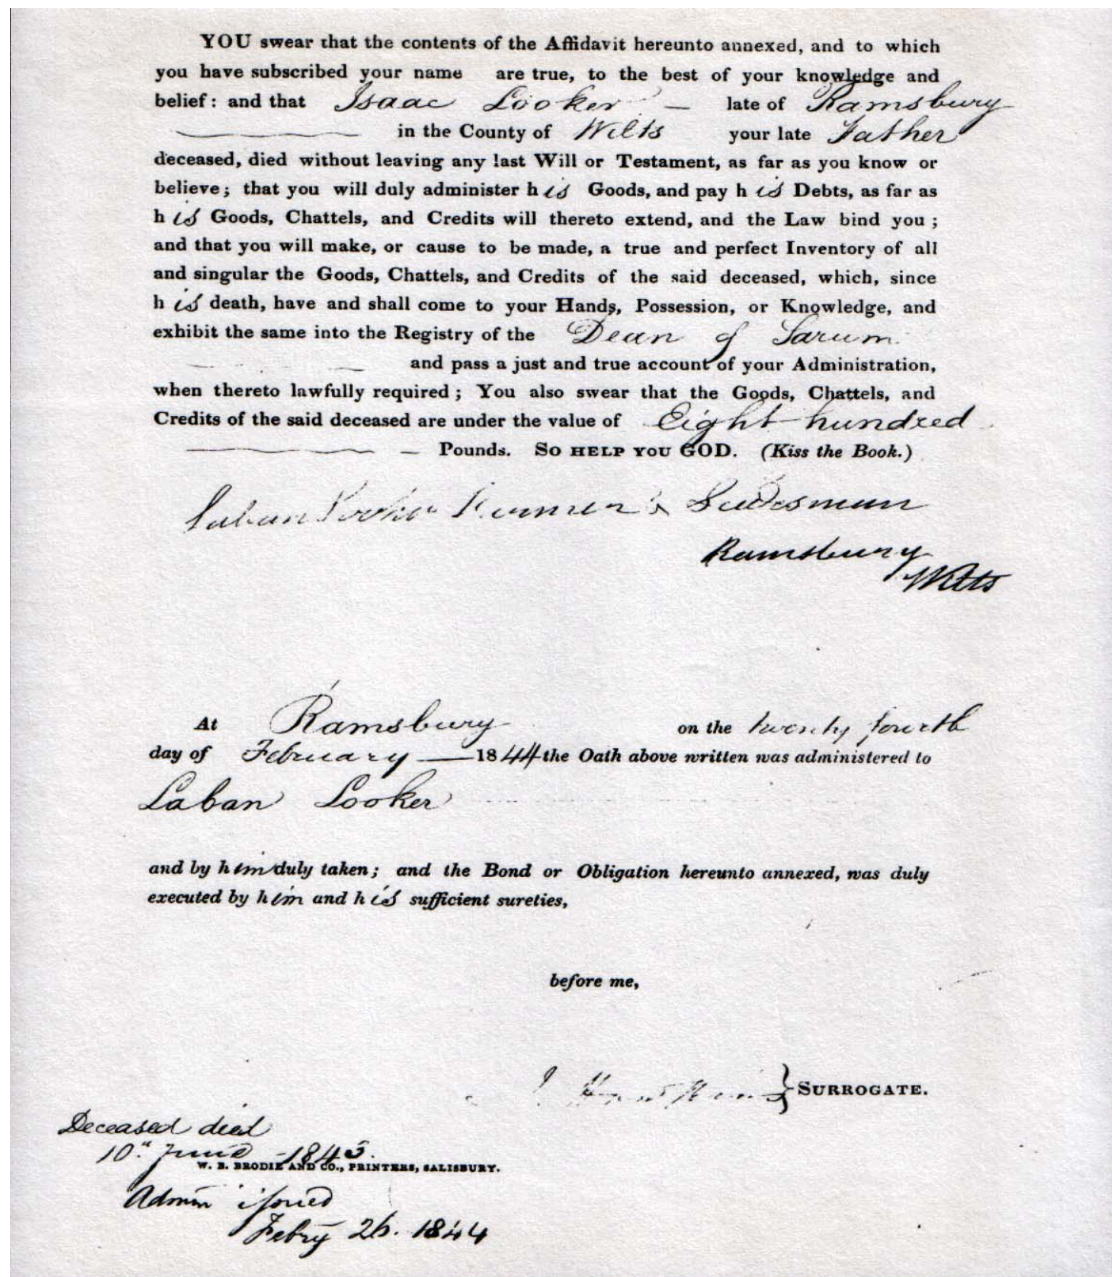 YOU swear that the contents of the Affidavit hereunto annexed, and to which
you have subscribed your name are true, to the best of your knowledge and
belief: and that Isaac Looker — late of Ramsbury
in the County of Wilts your late Father
deceased, died without leaving any last Will or Testament, as far as you know or
believe; that you will duly administer his Goods, and pay his Debts, as far as
his Goods, Chattels, and Credits will thereto extend, and the Law bind you;
and that you will make, or cause to be made, a true and perfect Inventory of all
and singular the Goods, Chattels, and Credits of the said deceased, which, since
his death, have and shall come to your Hands, Possession, or Knowledge, and
exhibit the same into the Registry of the Dean of Sarum
and pass a just and true account of your Administration,
when thereto lawfully required; You also swear that the Goods, Chattels, and
Credits of the said deceased are under the value of Eight hundred
— Pounds. SO HELP YOU GOD. (Kiss the Book.)
Laban Looker &
Ramsbury
Wilts
At Ramsbury on the twenty fourth
day of February — 1844 the Oath above written was administered to
Laban Looker
and by him duly taken; and the Bond or Obligation hereunto annexed, was duly
executed by him and his sufficient sureties,
before me,
} SURROGATE.
Deceased died
10th June 1843.
W. B. BRODIE AND CO., PRINTERS, SALISBURY.
Admin issued
Febry 26. 1844